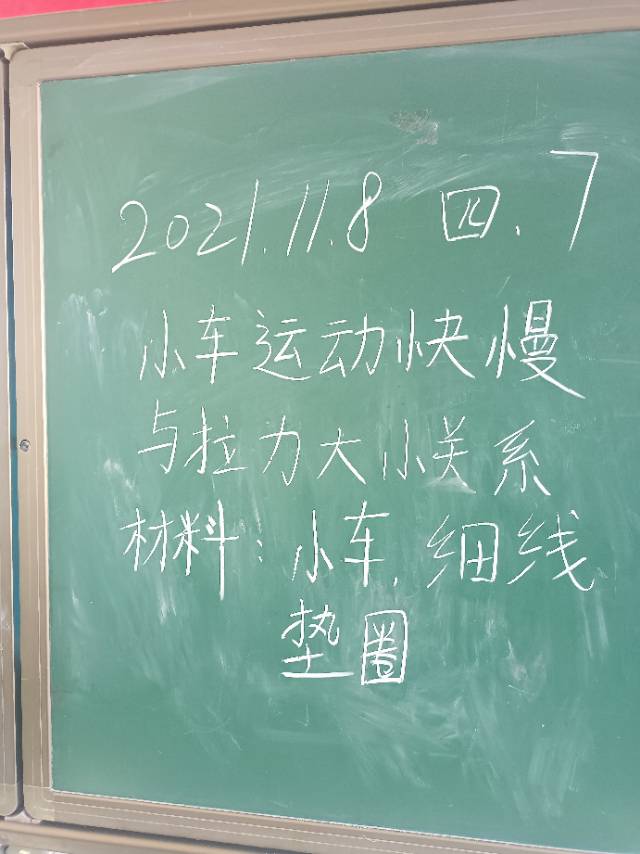 2021.11.8 四.7
小车运动快慢
与拉力大小关系
材料:小车.细线
垫圈